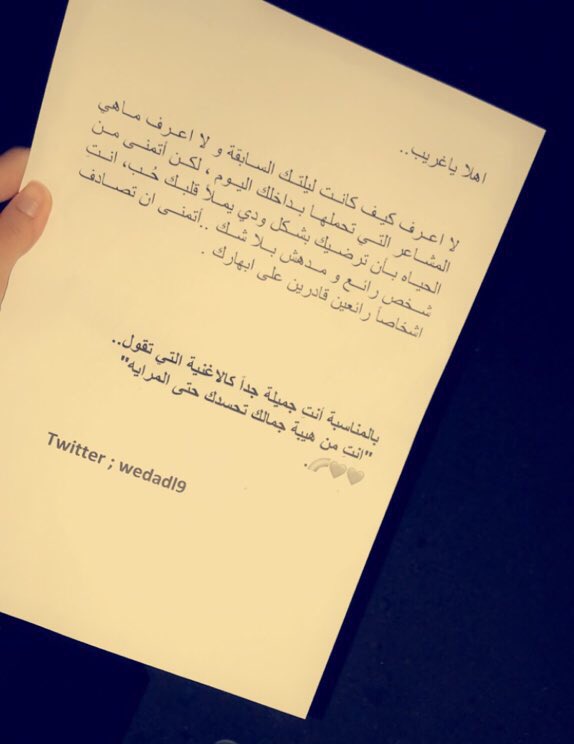 اهلا ياغريب..
لا اعرف كيف كانت ليلتك السابقة و لا اعرف ماهي
المشاعر التي تحملها بداخلك اليوم ، لكن أتمنى من
الحياه بأن ترضيك بشكل ودي يملأ قلبك حُب، انت
شخص رائع و مدهش بلا شك ..أتمنى ان تصادف
اشخاصاً رائعين قادرين على ابهارك .
بالمناسبة أنت جميلة جداً كالاغنية التي تقول..
"انتِ من هيبة جمالك تحسدك حتى المرايه"
🌈🤍🤍.
Twitter ; wedadl9